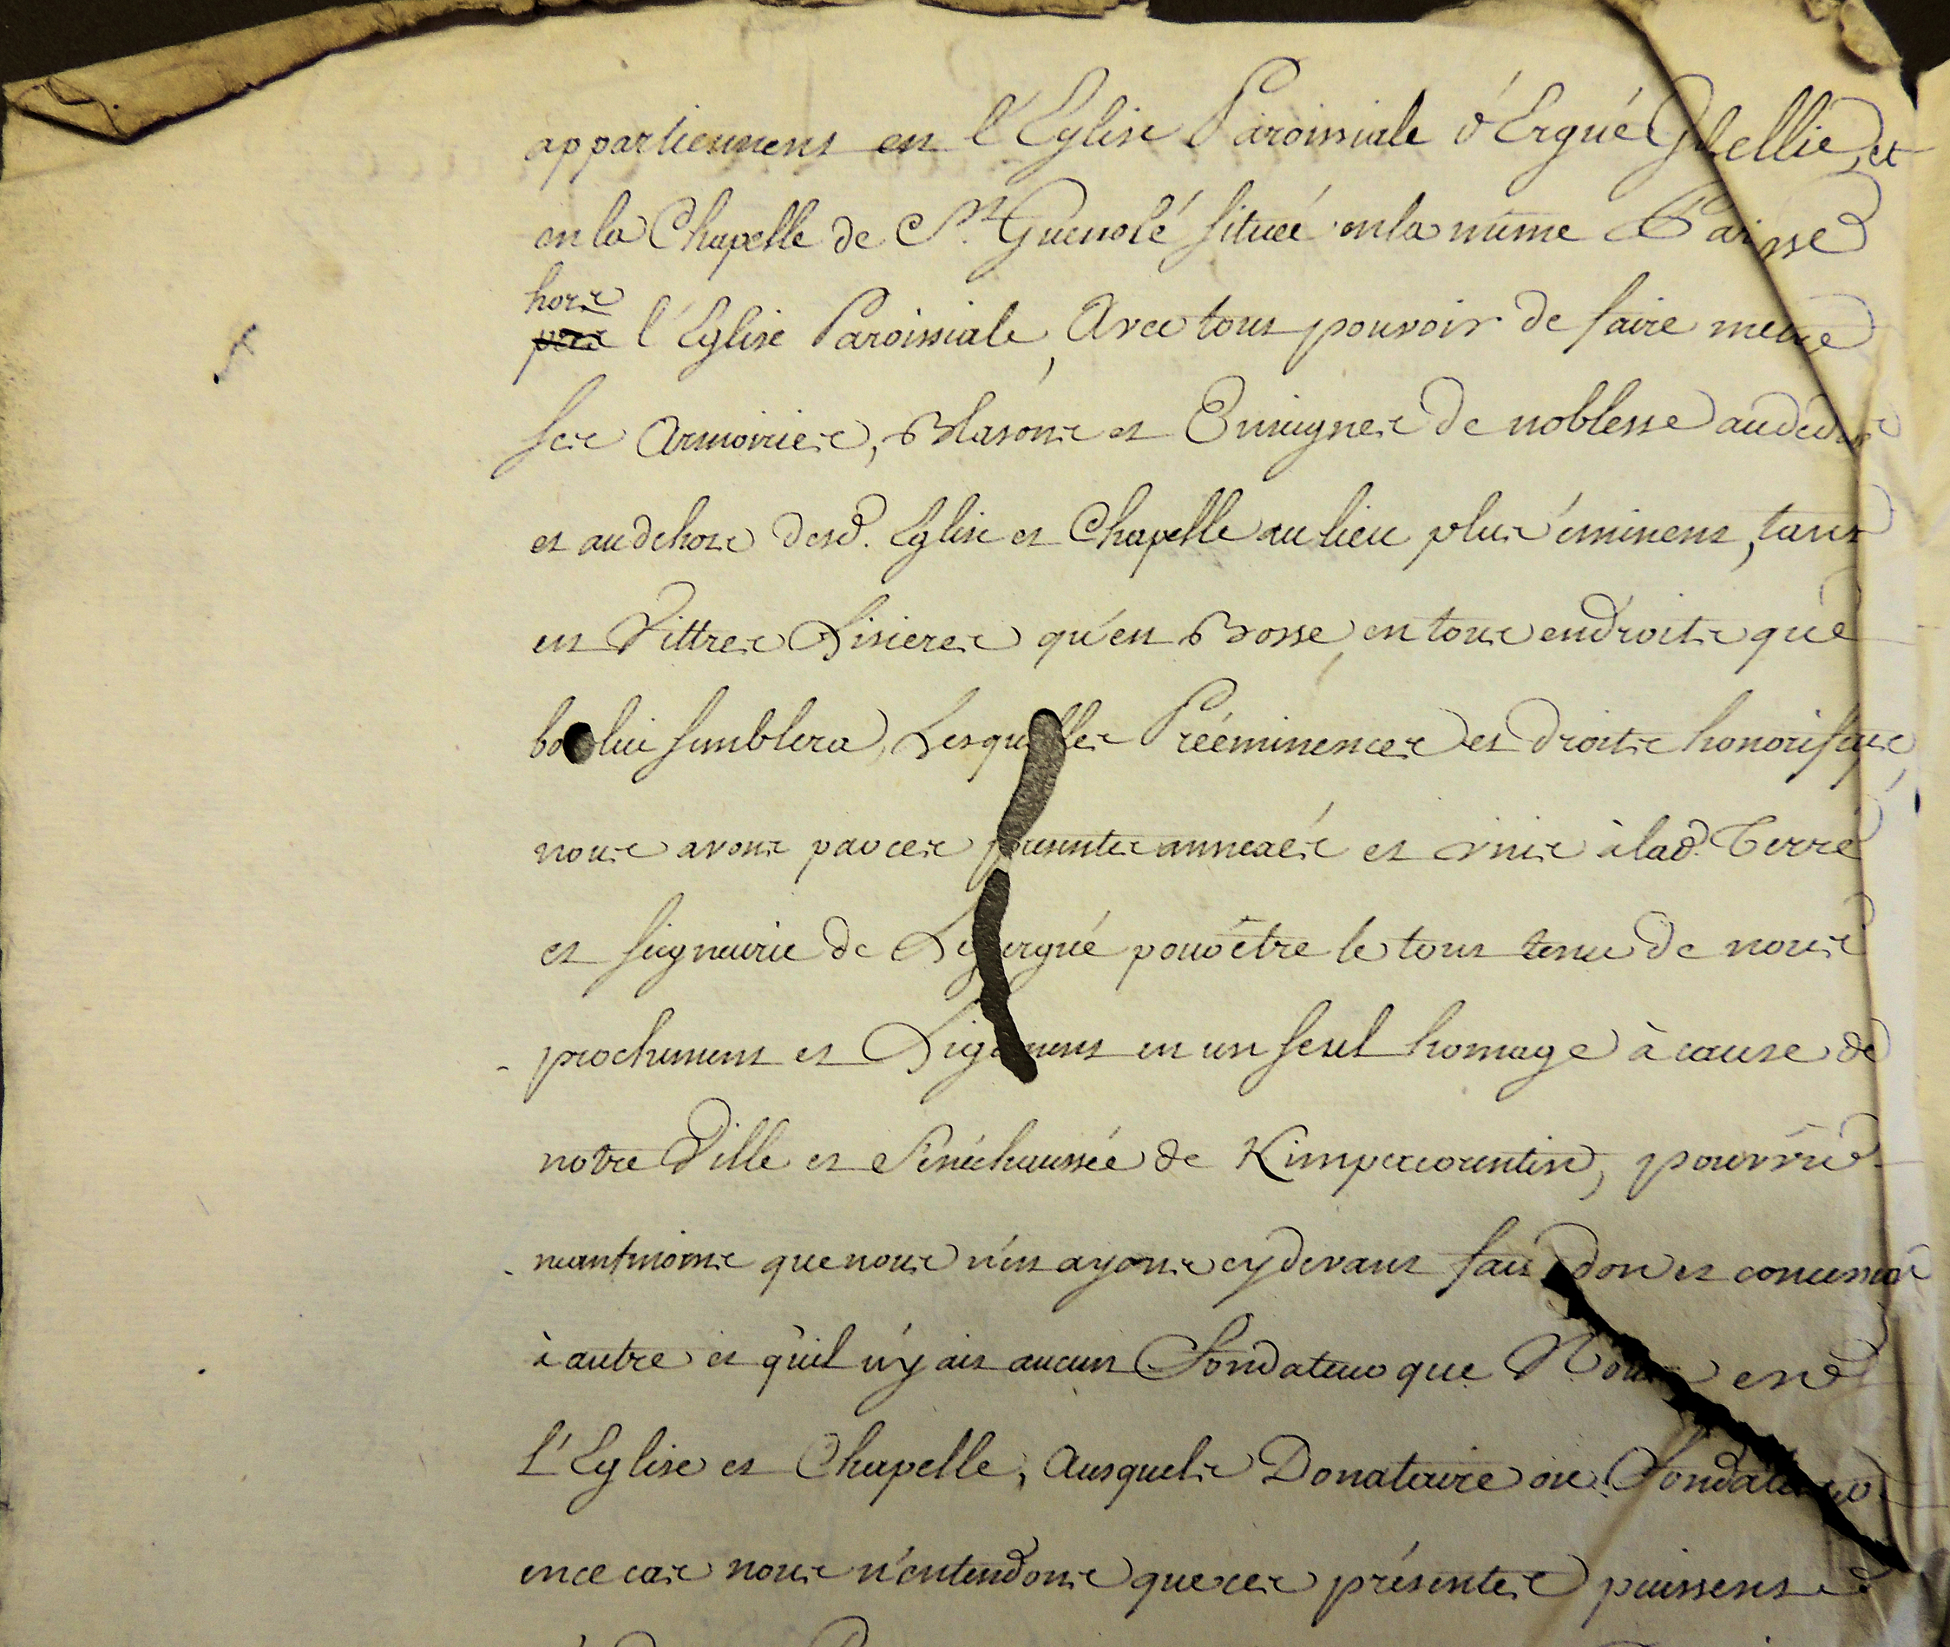 appartiennent en l'Eglise Paroissiale d'Ergué Gbellic, et
en la Chapelle de St. Guenolé située en la même Paroisse
hors
l'Eglise Paroissiale, Avec tout pouvoir de faire mettre
ses Armoiries, Blasons et Enseignes de noblesse au dedans
et au dehors desd. Eglise et Chapelle au lieu plus éminent, tant
en Vittres Lisieres qu'en Bosse, en tous endroits que
bon lui semblera, Lesquelles Prééminences et droits honorifiques,
nous avons par ces présentes annexés et unis à lad. Terre
et seigneurie de Lezergué pour être le tout tenu de nous
prochement et Ligement en un seul homage à cause de
notre Ville et Sénéchaussée de Kimpercorentin, pourvû
neantmoins que nous n'en ayons cydevant fait don et concession
à autre et qu'il n'y ait aucun Fondateur que Nous en
L'Eglise et Chapelle, Ausquels Donataire ou Fondateur
en ce cas nous n'entendons que ces présentes puissent